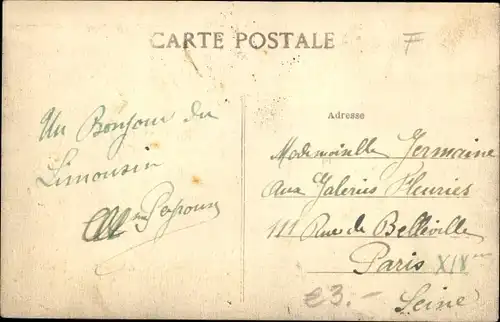 CARTE POSTALE
F
Un Bonjour du
Limousin
Adresse
Mademoiselle Germaine
Aux Galeries Fleuries
111 Rue de Belleville
Paris XIX
€3.-
Seine